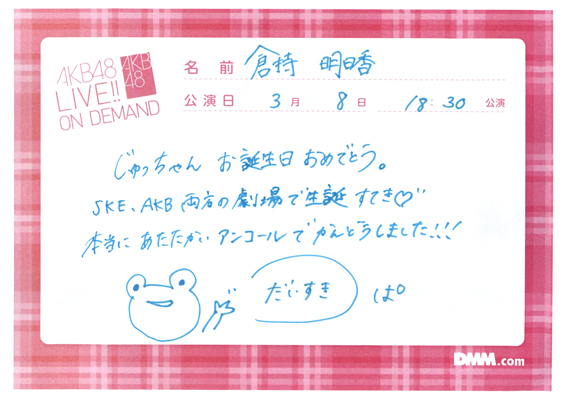 AKB48
LIVE!!
ON DEMAND
AKB
48
名前 倉持 明日香
公演日 3月 8日 18:30 公演
じゅっちゃん お誕生日 おめでとう。
SKE、AKB 両方の劇場で生誕 すてき♡
本当に あたたかい アンコールで かんどうしました!!!
だいすき ぱ。
DMM.com